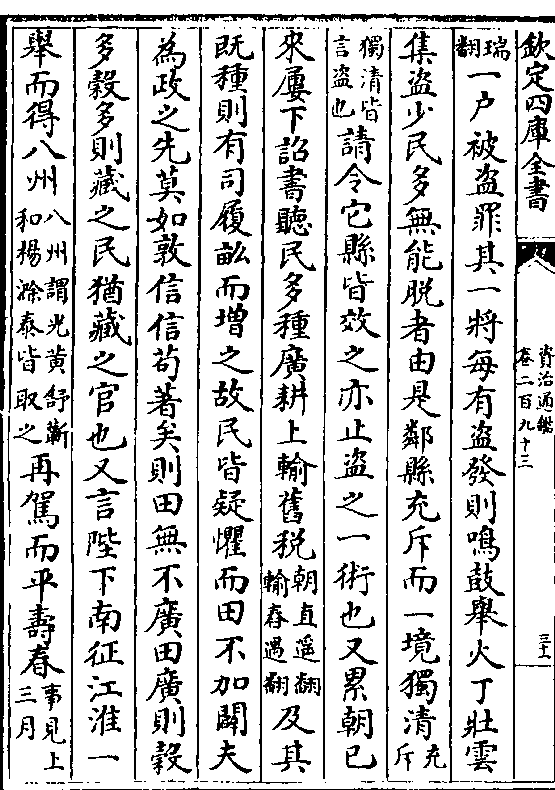 欽定四庫全書
資治通鑑
卷二百九十三
瑞翻一户被盗罪其一將每有盗發則鳴鼓舉火丁壯雲
集盗少民多無能脱者由是鄰縣充斥而一境獨清充斥
獨清皆言盗也請令它縣皆效之亦止盗之一術也又累朝已
來屢下詔書聽民多種廣耕上輸舊税朝直遥翻輸舂遇翻及其
既種則有司履畝而增之故民皆疑懼而田不加闢夫
為政之先莫如敦信信苟著矣則田無不廣田廣則穀
多穀多則藏之民猶藏之官也又言陛下南征江淮一
舉而得八州八州謂光黄舒蘄和楊滁泰皆取之再駕而平壽春事見上三月